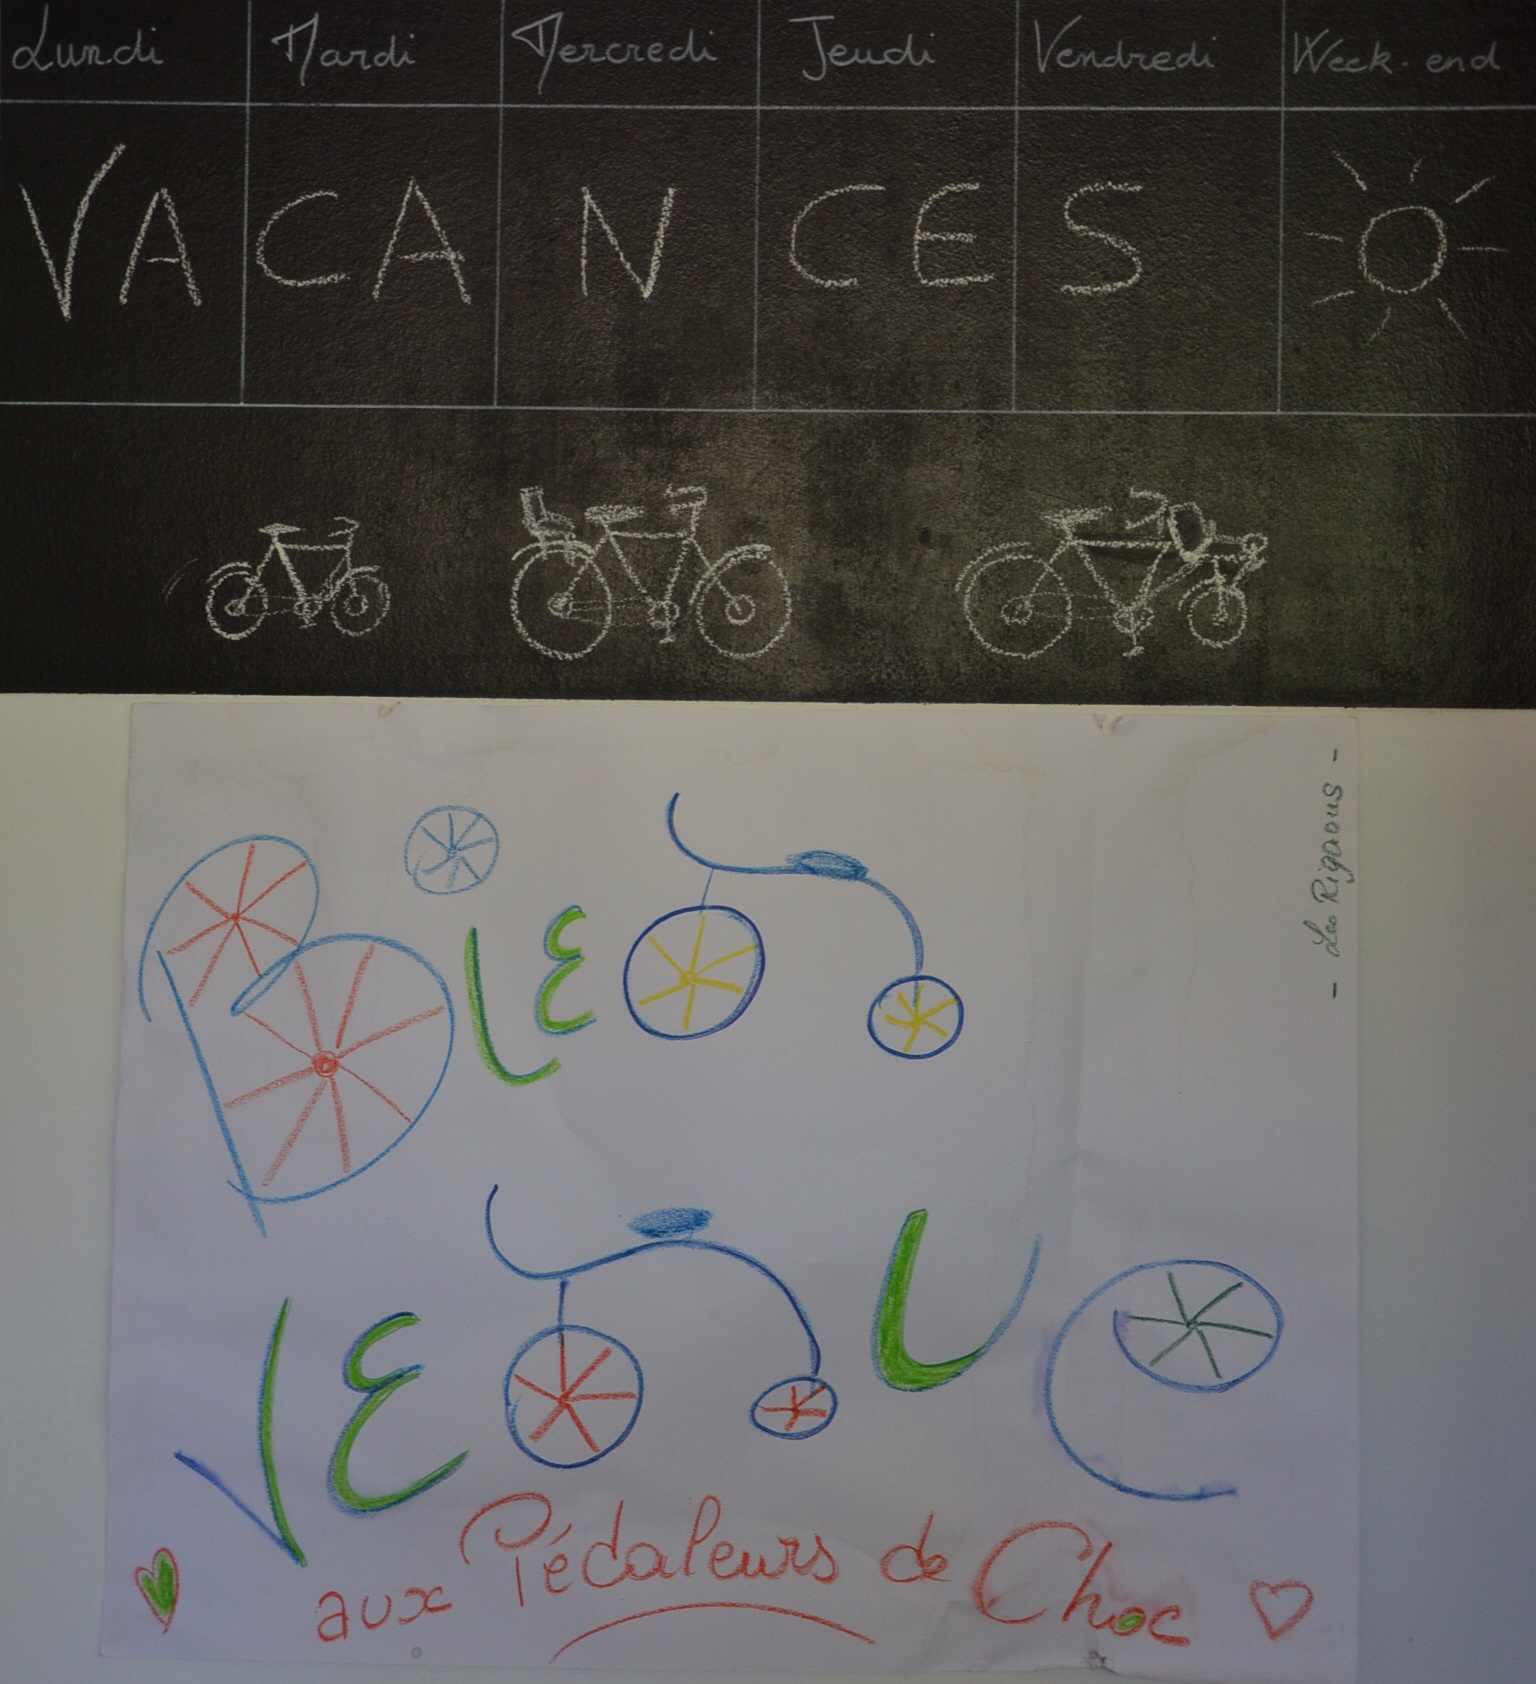 Lundi Mardi Mercredi Jeudi Vendredi Week-end
VACANCES
BiEN
VENUE
aux Pédaleurs de Choc
- Les Rigaous -